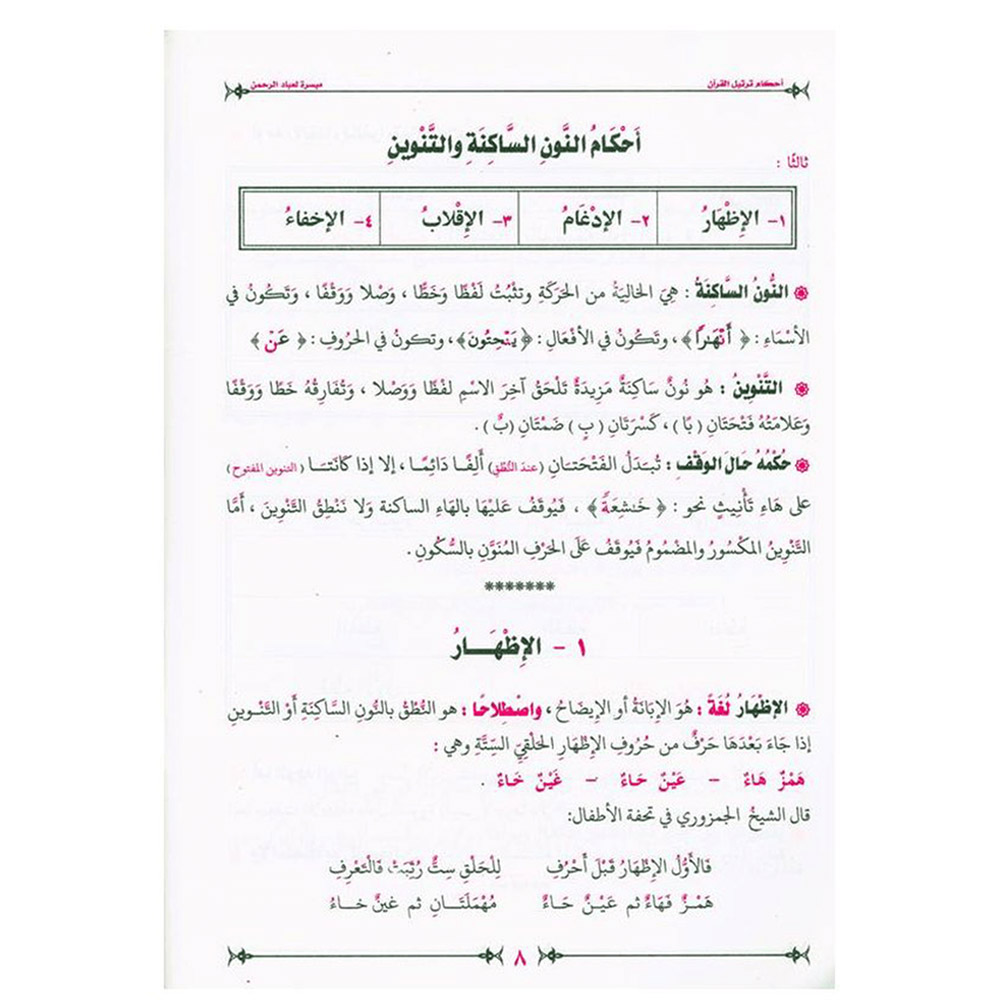 أحكام ترتيل القرآن
ميسرة لعباد الرحمن
أَحْكَامُ النُّونِ السَّاكِنَةِ والتَّنْوِينِ
ثالثًا :
١- الإِظْهَارُ ٢- الإِدْغَامُ ٣- الإِقْلَابُ ٤- الإخفاءُ
النُّونُ السَّاكنَةُ : هِيَ الخَالِيَةُ من الحَرَكَةِ وتثْبُتُ لَفْظًا وَخَطًّا ، وَصْلا وَوَقْفًا ، وَتَكُونُ في
الأسْمَاءِ : ﴿ أَنْهَٰرًا ﴾ ، وَتَكُونُ في الأفْعَالِ : ﴿ يَنْحِتُونَ ﴾ ، وتكونُ في الحرُوفِ : ﴿ عَنْ ﴾
التَّنْوِينُ : هُو نُونٌ سَاكِنَةٌ مَزِيدَةٌ تَلْحَقُ آخِرَ الاسْمِ لفظًا وَوَصْلا ، وَتُفَارِقُهُ خَطًا وَوَقْفًا
وَعَلامَتُهُ فَتْحَتَانِ ( بًا ) ، كَسْرَتَانِ ( بٍ ) ضَمْتَانِ (بٌ ) .
حُكْمُهُ حَالَ الوَقْفِ : تُبدَلُ الفَتْحَتَانِ (عند النُّطْقِ) أَلِفًا دَائِمًا ، إلا إذا كَانَتَا (التنوين المفتوح)
على هَاءِ تَأْنِيثٍ نحو : ﴿ خَٰشِعَةً ﴾ ، فَيُوقَفُ عَلَيْهَا بالهَاءِ الساكنة وَلا نَنْطِقُ التَّنْوِينَ ، أَمَّا
التَّنْوِينُ المكْسُورُ والمضْمُومُ فَيُوقَفُ عَلَى الحَرْفِ المُنَوَّنِ بالسُّكُونِ .
*******
١ - الإِظْهَـــارُ
الإظْهَارُ لُغَةً : هُوَ الإِبَانَةُ أو الإيضَاحُ ، واصْطِلاحًا : هو النُّطْقُ بالنُّونِ السَّاكِنَةِ أَوْ التَّنْوِينِ
إذا جَاءَ بَعْدَهَا حَرْفٌ من حُرُوفِ الإظْهَارِ الحَلْقِيِّ السِّتَّةِ وهي :
هَمْزٌ هَاءٌ – عَيْنٌ حَاءٌ – غَيْنٌ خَاءٌ .
قال الشيخُ الجمزوري في تحفة الأطفال:
فَالأَوَّلُ الإِظْهَارُ قَبْلَ أَحْرُفِ لِلْحَلْقِ سِتٌّ رُتِّبَتْ فَالْتَعْرِفِ
هَمْـزٌ فَهَاءٌ ثم عَيْـنٌ حَـاءُ مُهْمَلَتَـانِ ثم غينٌ خـاءُ
٨